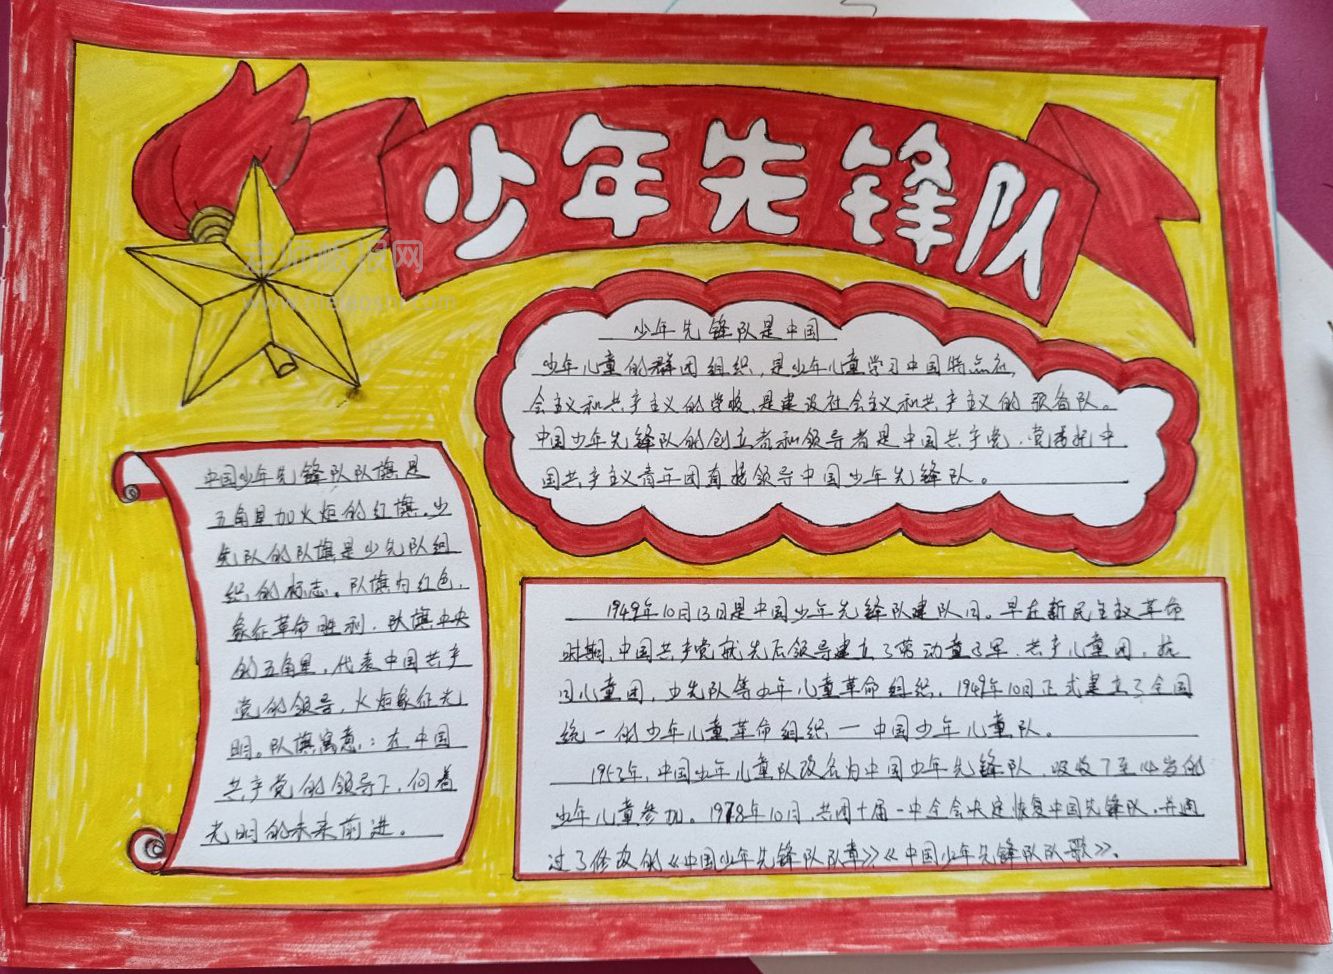 少年先锋队
老师板报网
少年先锋队是中国
少年儿童的群团组织,是少年儿童学习中国特点社
会主义和共产主义的学校,是建设社会主义和共产主义的预备队。
中国少年先锋队的创立者和领导者是中国共产党,党委托中
国共产主义青年团直接领导中国少年先锋队。
中国少年先锋队队旗是
五角星加火炬的红旗。少
先队的队旗是少先队组
织的标志。队旗为红色,
象征革命胜利,队旗中央
的五角星,代表中国共产
党的领导,火炬象征光
明。队旗寓意:在中国
共产党的领导下,向着
光明的未来前进。
1949年10月13日是中国少年先锋队建队日。早在新民主主义革命
时期,中国共产党就先后领导建立了劳动童子军、共产儿童团,抗
日儿童团,少先队等少年儿童革命组织。1949年10月正式建立了全国
统一的少年儿童革命组织一中国少年儿童队。
1953年,中国少年儿童队改名为中国少年先锋队 吸收了至 岁的
少年儿童参加。1978年10月,共团十届一中全会决定恢复中国先锋队,并通
过了修改的《中国少年先锋队队章》《中国少年先锋队队歌》。